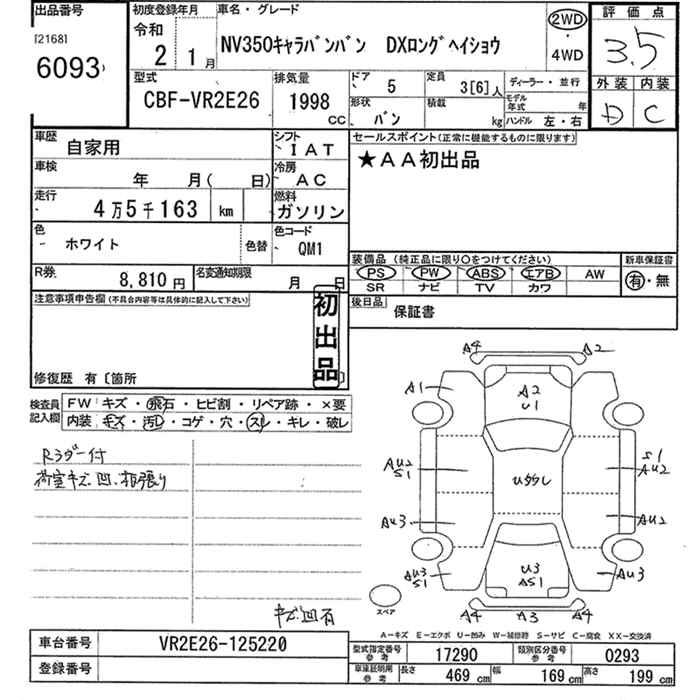 出品番号
[2168]
6093
初度登録年月
令和
2 1月
車名・グレード
NV350キャラバンバン DXロングヘイショウ
2WD
・
4WD
評価点
3.5
外装 内装
D C
型式
CBF-VR2E26
排気量
1998
CC
ドア
5
定員
3[6]人
形状
バン
積載
kg
ディーラー・並行
モデル年式 年
ハンドル 左・右
車歴
自家用
シフト
IAT
車検
年 月( 日)
冷房
AC
走行
4万5千163 km
燃料
ガソリン
色
ホワイト
色替
色コード
QM1
R券
8,810円
名変通知期限
月 日
セールスポイント(正常に機能するものに限ります)
★AA初出品
装備品 (純正品に限り○をつけてください)
新車保証書
PS PW ABS エアB AW
SR ナビ TV カワ
有・無
後日品
保証書
注意事項申告欄(不具合内容等は具体的に記入して下さい)
初出品
修復歴 有〔箇所 〕
検査員記入欄
FW キズ・飛石・ヒビ割・リペア跡・×要
内装 キズ・汚レ・コゲ・穴・スレ・キレ・破レ
Rラダー付
荷室キズ凹、板張り
キズ凹有
A4 A2
A1
A2
U1
AU2
S1
Uララし
S1
AU2
AU3
AU2
AU3
S1
U3
AS1
AU3
スペア
A4 A3 A4
A－キズ E－エクボ U－凹み W－補修跡 S－サビ C－腐食 XX－交換済
車台番号
VR2E26-125220
登録番号
型式指定番号
参考
17290
類別区分番号
参考
0293
車庫証明用
参考
長さ 469 cm 幅 169 cm 高さ 199 cm